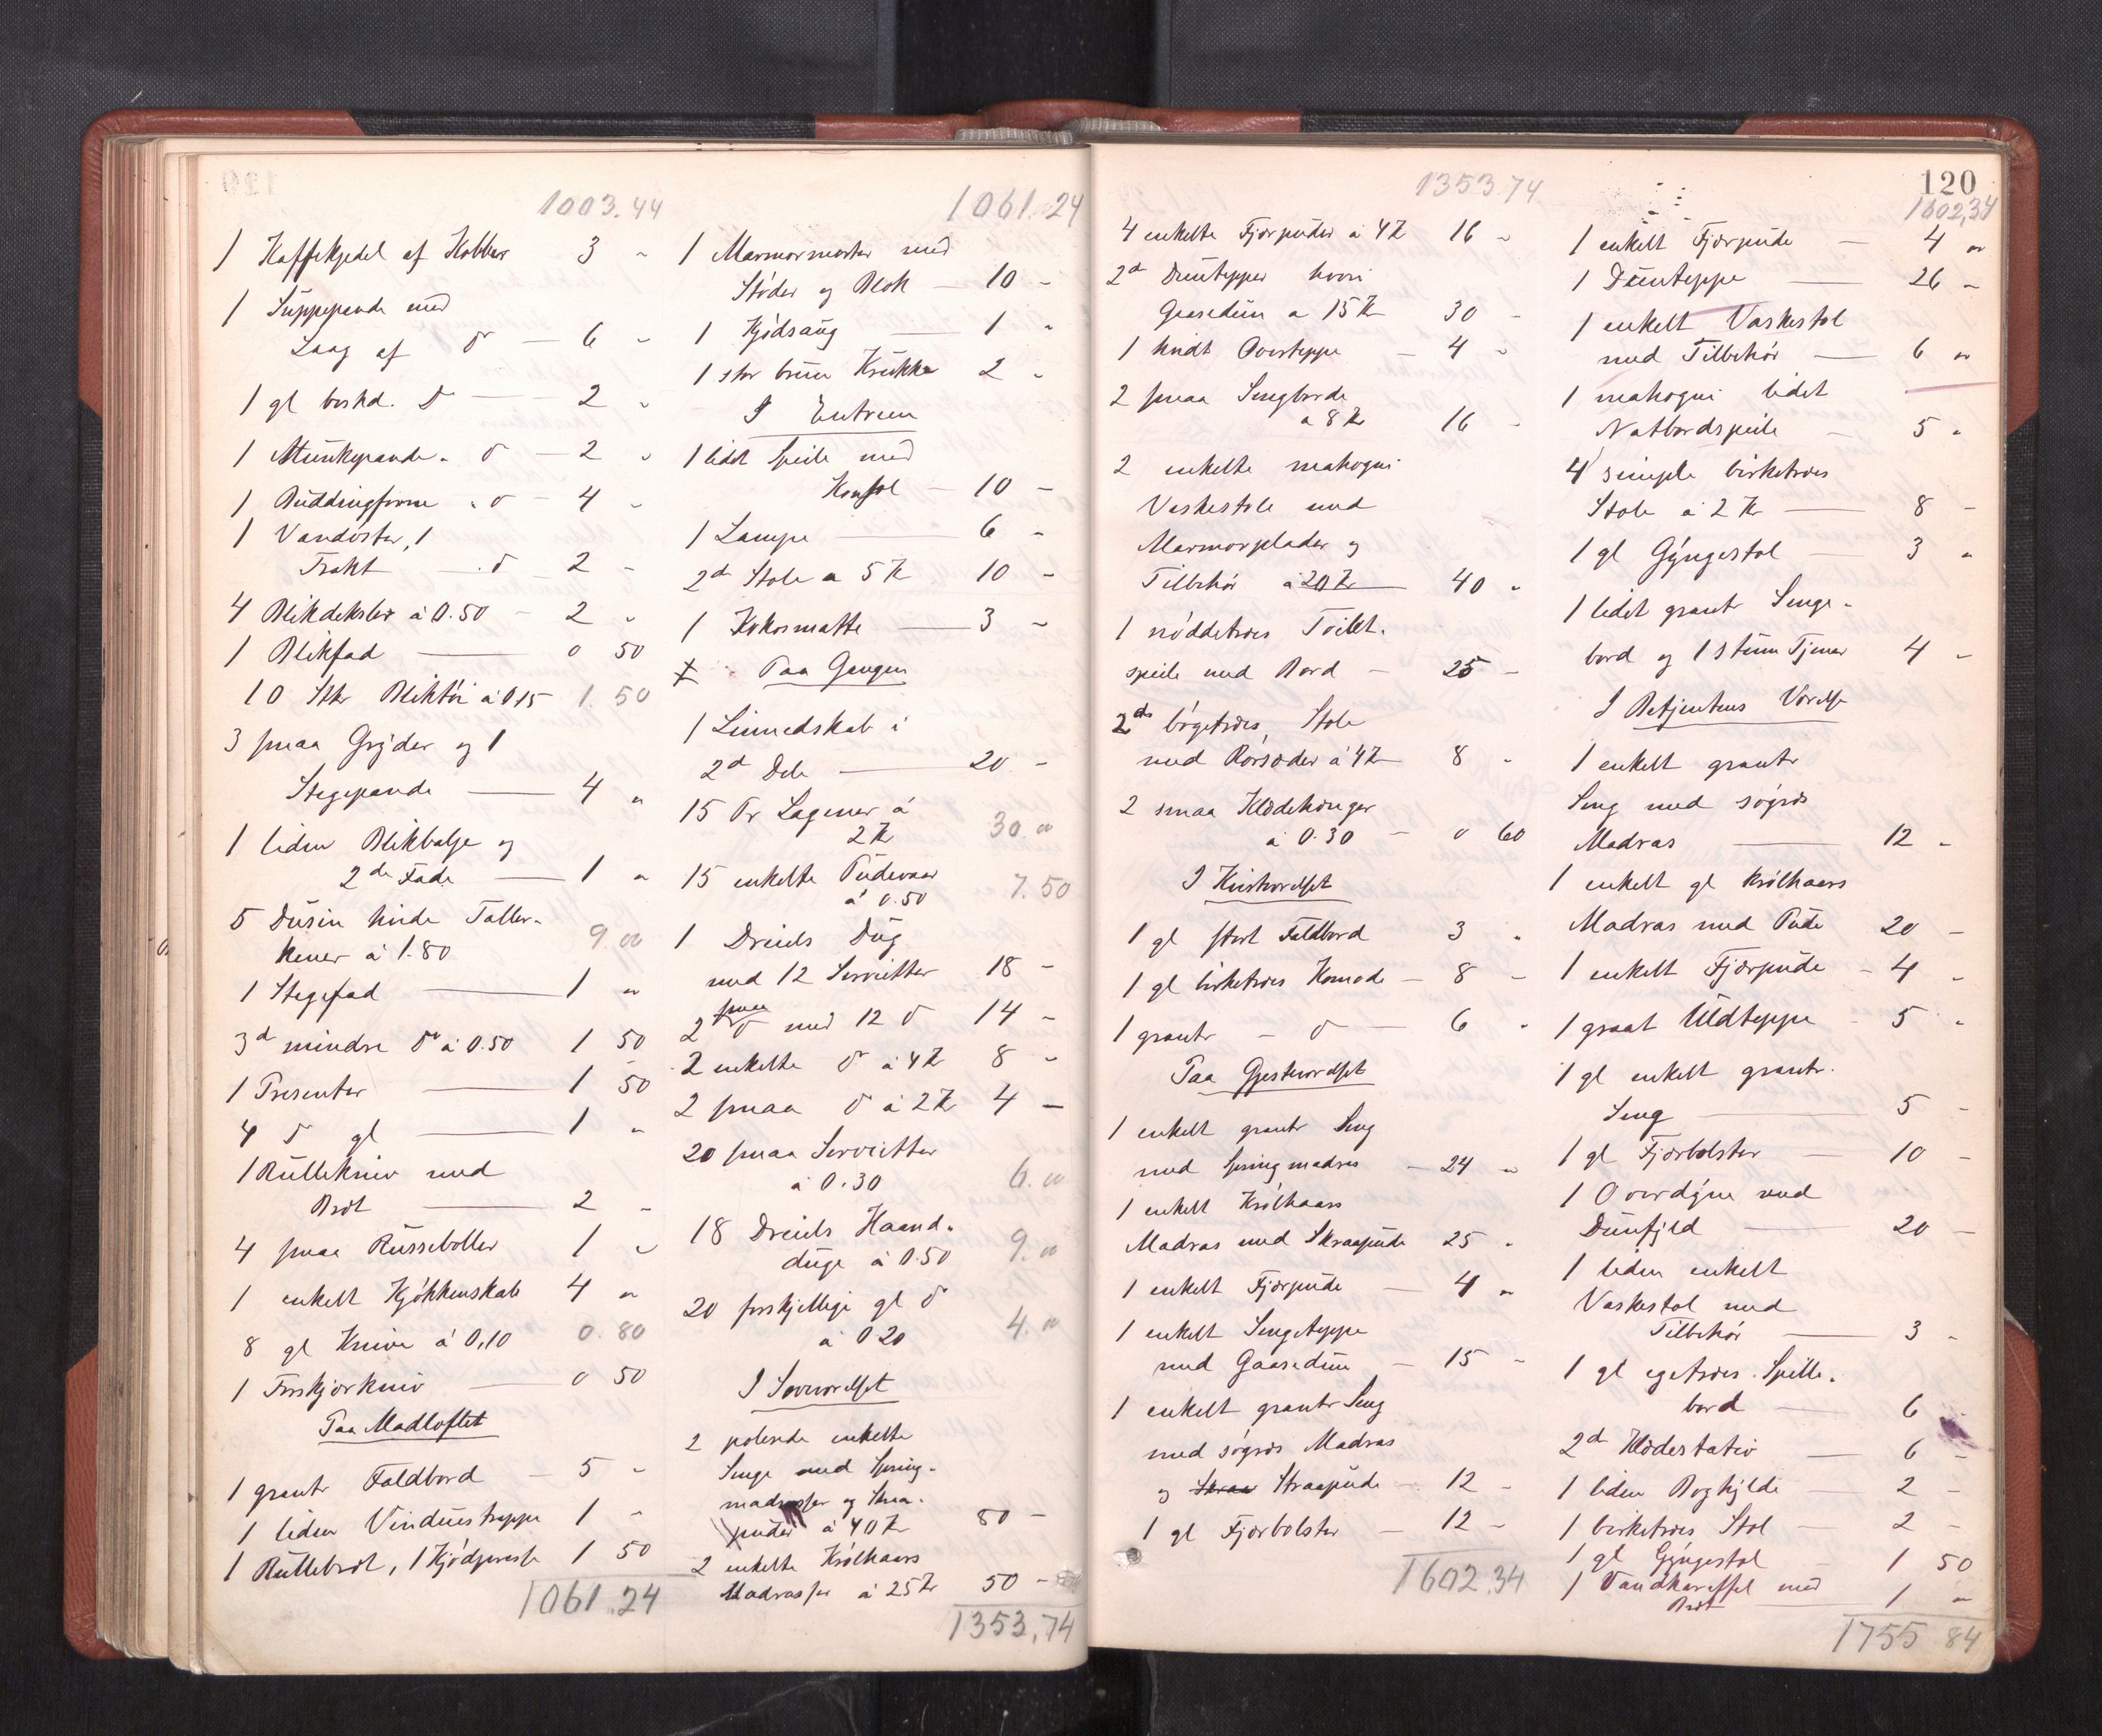 1003.44
1 Kaffekjedel af Kobber 3 "
1 Suppepande med
Laag af do — 6 "
1 gl beskd. do — 2 "
1 Munkepande " do — 2 "
1 Puddingform " do — 4 "
1 Vandøser, 1
Trakt — " do — 2 "
4 Blikdeksler à 0.50 — 2 "
1 Blikfad — 0 50
10 Stkr Bliktøi à 0,15 1.50
3 smaa Gryder og 1
Stegepande — 4 "
1 liden Blikbalje og
2de Fade — 1 "
5 Dusin hvide Taller-
kener à 1.80 9.00
1 Stegefad — 1 "
3d mindre do à 0.50 1 50
1 Presenter — 1 50
4 do gl — 1 "
1 Rullekniv med
Bræt — 2 "
4 smaa Russeboller 1 "
1 enkelt Kjøkkenskab 4 "
8 gl Knive à 0,10 0.80
1 Forskjærkniv — 0 50
Paa Madloftet
1 grantr Foldbord — 5 "
1 liden Vinduestrappe 1 "
1 Rullebræt, 1 Kjødpresse 1 50
1061.24
1061.24
1 Marmormorter med
Støder og Blok — 10 -
1 Kjødsaug — 1 "
1 stor brun Krukke 2 "
I Entreen
1 lidet Speile med
Konsol — 10 -
1 Lampe — 6 -
2d Stole a 5 Kr 10 -
1 Kokosmatte — 3 -
Paa Gangen
1 Linnedskab i
2d Dele — 20 -
15 Pr Lagener à
2 Kr 30.00
15 enkelte Pudevaar
à 0.50 7.50
1 Dreiels Dug
med 12 Servietter 18 -
2 smaa do med 12 do 14 -
2 enkelte do à 4 Kr 8 -
2 smaa do à 2 Kr 4 —
20 smaa Servietter
à 0.30 6.00
18 Dreiels Haand-
duge à 0.50 9.00
20 forskjellige gl do
à 0 20 4.00
I Soveværelset
2 polerede enkelte
Senge med Spring-
madrasser og Skraa-
puder à 40 Kr 80 -
2 enkelte Krølhaars
Madrasse à 25 Kr 50 -
1353,74
1353.74
4 enkelte Fjærpuder à 4 Kr 16 -
2d Duntepper hvori
Gaasedun a 15 Kr 30 -
1 hvidt Overteppe — 4 -
2 smaa Sengborde
a 8 Kr 16 -
2 enkelte mahogni
Vaskestole med
Marmorplader og
Tilbehør à 20 Kr — 40 "
1 nøddetræes Toilet-
speile med Bord — 25 -
2de bøgetræes Stole
med Rørsæder à 4 Kr 8 "
2 smaa Klædehænger
à 0.30 — 0 60
I Kvistværelset
1 gl stort Foldbord 3 "
1 gl birketræes Komode — 8 -
1 grantr — do — 6 "
Paa Gjesteværelset
1 enkelt grantr Seng
med Springmadras — 24 "
1 enkelt Krølhaars
Madras med Skraapude 25 "
1 enkelt Fjærpude — 4 "
1 enkelt Sengeteppe
med Gaasedun — 15 -
1 enkelt grantr Seng
med søgræs Madras
og Skraa Straapude — 12 -
1 gl Fjærbolster — 12 -
1602.34
120
1602,34
1 enkelt Fjærpude — 4 "
1 Dunteppe — 26 "
1 enkelt Vaskestol
med Tilbehør — 6 "
1 mahogni lidet
Natbordspeile — 5 "
4 simple birketræes
Stole à 2 Kr — 8 -
1 gl Gyngestol — 3 "
1 lidet grantr Senge-
bord og 1 stum Tjener 4 -
I Betjentens Værelse
1 enkelt grantr
Seng med søgræs
Madras — 12 "
1 enkelt gl krølhaars
Madras med Pude 20 -
1 enkelt Fjærpude — 4 -
1 graat Uldteppe — 5 "
1 gl enkelt grantr.
Seng — 5 -
1 gl Fjærbolster — 10 -
1 Overdyne med
Dunfyld — 20 -
1 liden enkelt
Vaskestol med
Tilbehør — 3 -
1 gl egetræes Spille-
bord — 6 "
2d Klædestativ — 6 -
1 liden Boghylde — 2 -
1 birketræes Stol — 2 -
1 gl Gyngestol — 1 50
1 Vandkaraffel med
Bræt — 1 "
1755 84